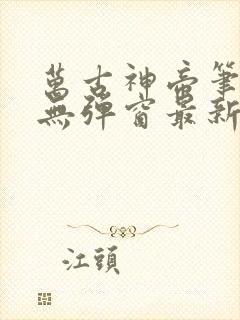 萬古神帝筆
無彈窗最新
江頭